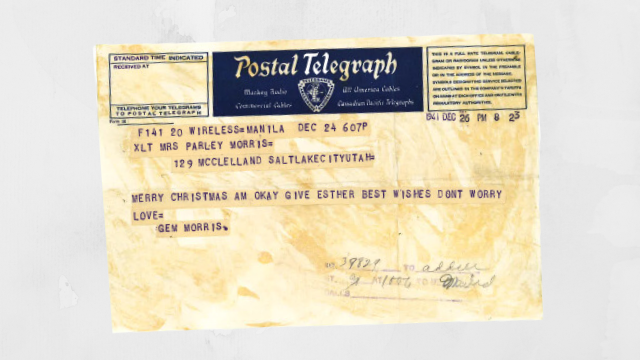 STANDARD TIME INDICATED
RECEIVED AT
TELEPHONE YOUR TELEGRAMS
TO POSTAL TELEGRAPH
Postal Telegraph
Mackay Radio
All America Cables
Commercial Cables
Canadian Pacific Telegraphs
THIS IS A FULL RATE TELEGRAM, CABLE-
GRAM OR RADIOGRAM UNLESS OTHERWISE
INDICATED BY SYMBOL IN THE PREAMBLE
OR IN THE ADDRESS OF THE MESSAGE.
SYMBOLS DESIGNATING SERVICE SELECTED
ARE OUTLINED IN THE COMPANY'S TARIFFS
ON HAND AT EACH OFFICE AND ON FILE WITH
REGULATORY AUTHORITIES.
1941 DEC 26 PM 8 23
F141 20 WIRELESS=MANILA DEC 24 607P
XLT MRS PARLEY MORRIS=
129 MCCLELLAND SALTLAKECITYUTAH=
MERRY CHRISTMAS AM OKAY GIVE ESTHER BEST WISHES DONT WORRY
LOVE=
GEM MORRIS.
39829 TO
AT TO BE